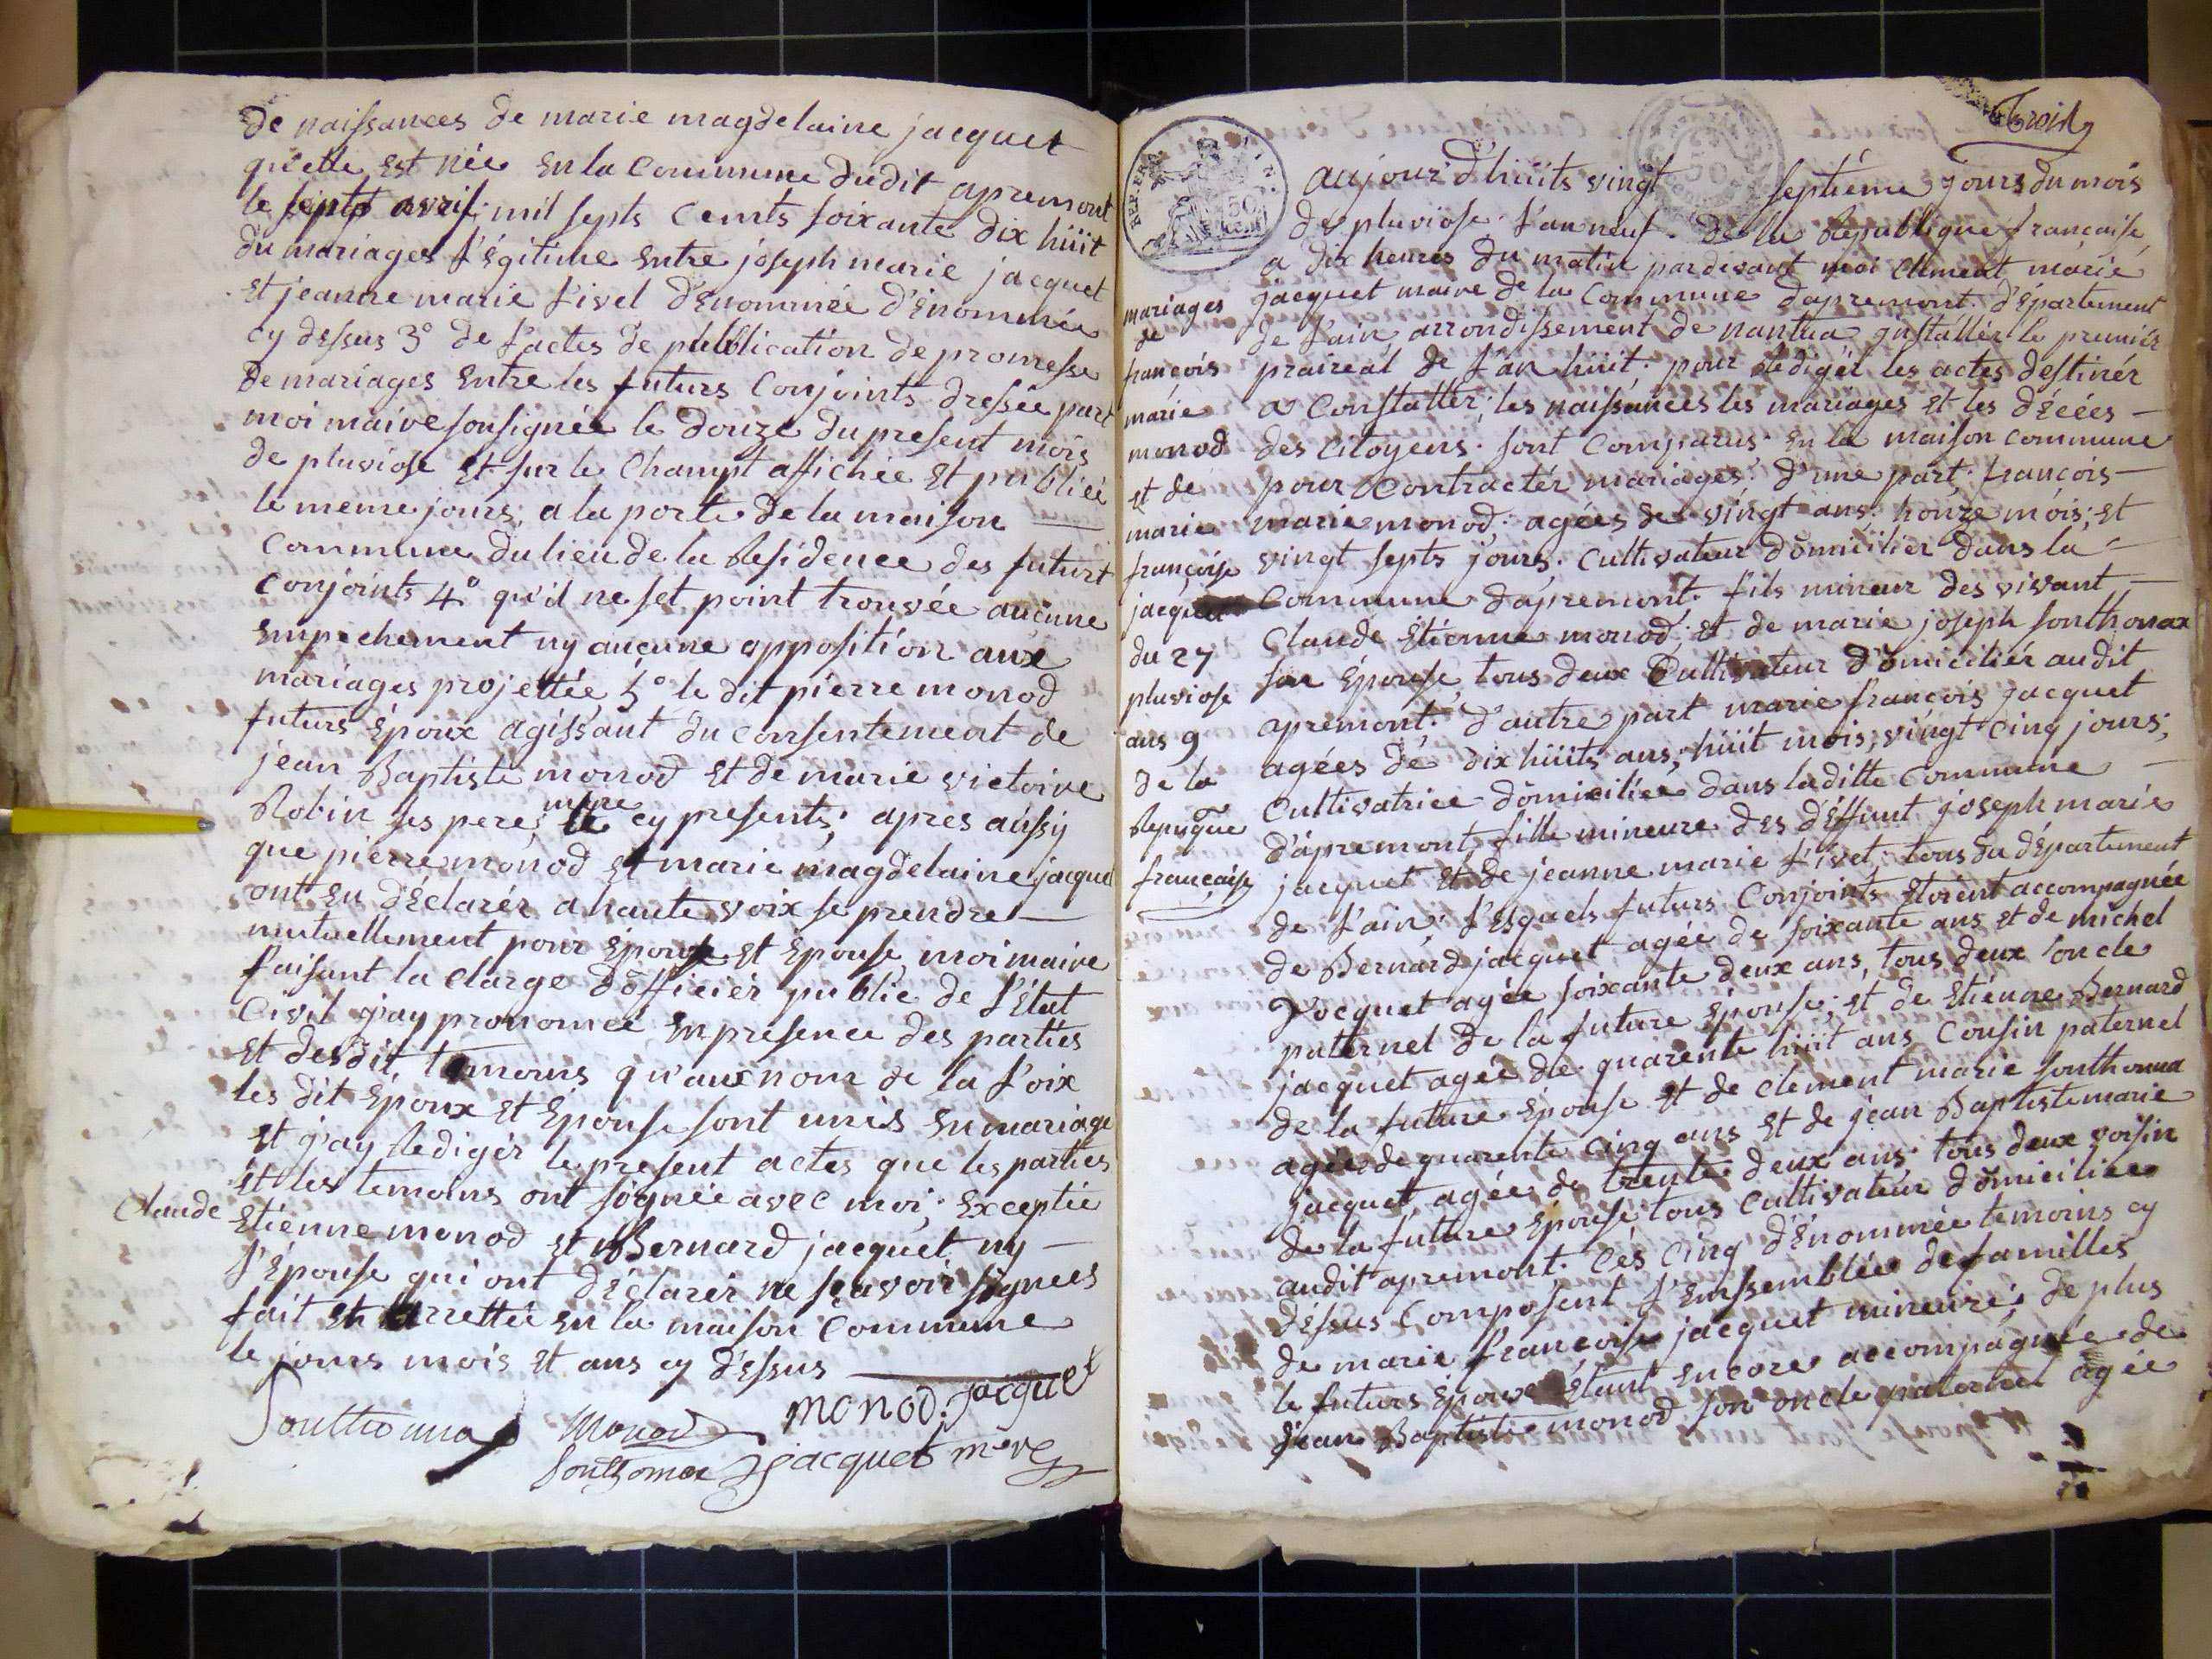 de naissances de marie magdelaine jacquet
qu'elle est née en la Commune dudit apremont
le sept avril mil septs cents soixante dix hüit
du mariages l'égitime entre joseph marie jacquet
et jeanne marie livet dénommée d'énommée
cy dessus 3° de l'actes de publication de promesse
de mariages entre les futurs Conjoints dressée part
moi maire sousignée le douze du present mois
de pluviose et sur le Champt affichée et publiée
le meme jours, a la porte de la maison
Commune du lieu de la Residence des futurt
Conjoints 4° qu'il ne set point trouvée aucune
empechement ny aucune opposition aux
mariages projettée, 5° le dit pierre monod
futurs époux agissant du Consentement de
jean Baptiste monod et de marie victoire
mere
Robin ses pere, cy presents; apres aussy
que pierre monod et marie magdelaine jacquet
ont eu déclarér a haute voix se prendre
mutuellement pour époux et épouse moi maire
faisant la Charge d'officiér public de l'état
Civil j'ay prononcé en presence des parties
et desdit temoins qu'aux nom de la l'oix
les dit époux et epouse sont unis en mariage
et j'ay Redigér le present actes que les parties
et les temoins ont signée avec moi; exceptée
Claude etienne monod et Bernard jacquet ny
l'épouse qui ont déclarér ne scavoir signees
fait et arrettée en la maison Commune
le jours mois et ans cy d'essus
Southonna Monod monod. jacquet
Southonax jacquet mere
Trois
REP. FRA.
50
cent.
Aujour d'hüits vingt septiéme jours du mois
de pluviose l'an neuf. de la République française,
a dix heures du matin pardevant moi Clement marie
jacquet maire de la Commune d'apremont. d'épartement
de l'ain, arrondissement de nantua jnstallér le premiér
praireal de l'an hüit. pour Redigér les actes destinér
a Constattér, les naissances les mariages et les décées
des Citoyens. sont Comparus. en la maison commune
pour Contractér mariages. d'une part. françois
marie monod. agées de vingt ans. honze mois; et
vingt septs jours. Cultivateur domiciliér dans la
Commune d'apremont. fils mineur des vivant
Claude étienne monod; et de marie joseph Southonax
son épouse, tous deux Cultivateur domiciliér audit
apremont. d'autre part marie françois jacquet
agées de dix hüits ans, hüit mois, vingt cinq jours;
Cultivatrice domiciliée dans laditte Commune
d'apremont, fille mineure des déffunt joseph marie
jacquet et de jeanne marie livet, tous du département
de l'ain; l'esquels futurs Conjoints etoient accompagnée
de Bernard jacquet agée de soixante ans et de michel
Jacquet agée soixante deux ans, tous deux l'oncle
paternel de la future épouse; et de etienne Bernard
jacquet agée de quarente hüit ans Cousin paternel
de la future epouse et de clement marie Southonna
agée de quarente cinq ans et de jean Baptiste marie
jacquet, agée de trente deux ans. tous deux voisin
de la future épouse tous Cultivateur domiciliée
audit apremont. Cés Cinq d'énommée temoins cy
déssus Composent l'enssemblée de familles
de marie françoise jacquet mineure; de plus
le futurs époux étant encore accompagnée de
jean Baptiste monod son oncle paternel agée
mariages
de
françois
marie
monod
et de
marie
françoise
jacquet
du 27
pluviose
ans 9
de la
Repuque
française